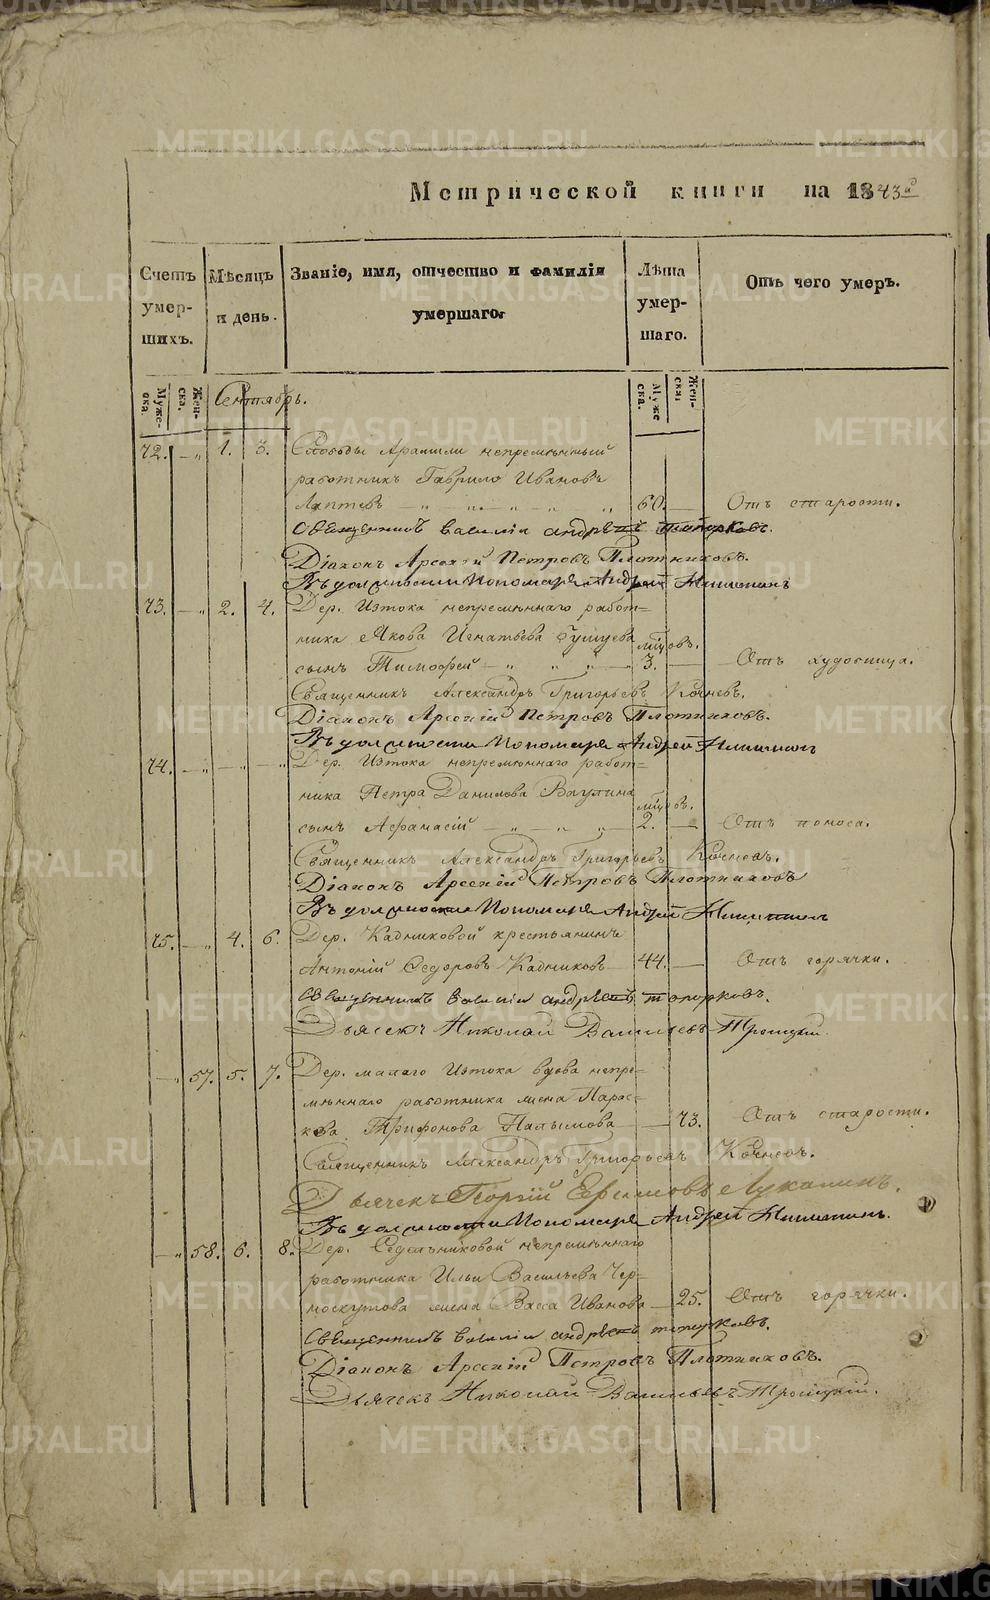 Метрической книги на 1843й
Счетъ умерших.
Мѣсяцъ и день.
Званіе, имя, отчество и фамилія умершаго.
Лѣта умершаго.
Отъ чего умеръ.
Мужеска.
Женска.
Сентябрь.
Муже ска.
Женска.
72. — „ 1. 3. Слободы Арамили непремѣнный
работникъ Гаврило Ивановъ
Лаптевъ — „ — „ — „ „ 60. — Отъ старости.
Священникъ Василій Андреевъ Топорковъ.
Діаконъ Арсеній Петровъ Плотниковъ.
Въ должности Пономаря Андрей Никитинъ
73. — „ 2. 4. Дер. Изтока непремѣннаго работ=
ника Якова Игнатьева мѣцовъ.
сынъ Тимофей — „ „ „ — „ 3. — Отъ худобища.
Священникъ Александръ Григорьевъ Кочневъ.
Діаконъ Арсеній Петровъ Плотниковъ.
Въ должности Пономаря Андрей Никитинъ
74. — „ — „ — „ Дер. Изтока непремѣннаго работ=
ника Петра Данилова Ваулина мѣцов.
сынъ Афанасій — „ — „ — „ 2. — Отъ поноса.
Священникъ Александръ Григорьевъ Кочневъ.
Діаконъ Арсеній Петровъ Плотниковъ
Въ должности Пономаря Андрей Никитинъ
75. — „ 4. 6. Дер. Кадниковой крестьянинъ
Антоній Федоровъ Кадниковъ 44. — Отъ горячки.
Священникъ Василій Андреевъ Топорковъ.
Дьячекъ Николай Васильевъ Троицкій
— „ 57. 5. 7. Дер. малаго Изтока вдова непре=
мѣннаго работника жена Парас=
кова Трифонова Палымова — 73. Отъ старости.
Священникъ Александръ Григорьевъ Кочневъ.
Дьячекъ Георгій Ефимовъ Лукининъ.
Въ должности Пономаря Андрей Никитинъ.
— „ 58. 6. 8. Дер. Седельниковой непремѣннаго
работника Ильи Васильева Чер=
москутова жена Васса Иванова — 25. Отъ горячки.
Священникъ Василій Андреевъ Топорковъ.
Діаконъ Арсеній Петровъ Плотниковъ.
Дьячекъ Николай Васильевъ Троицкій.
METRIKI.GASO-URAL.RU